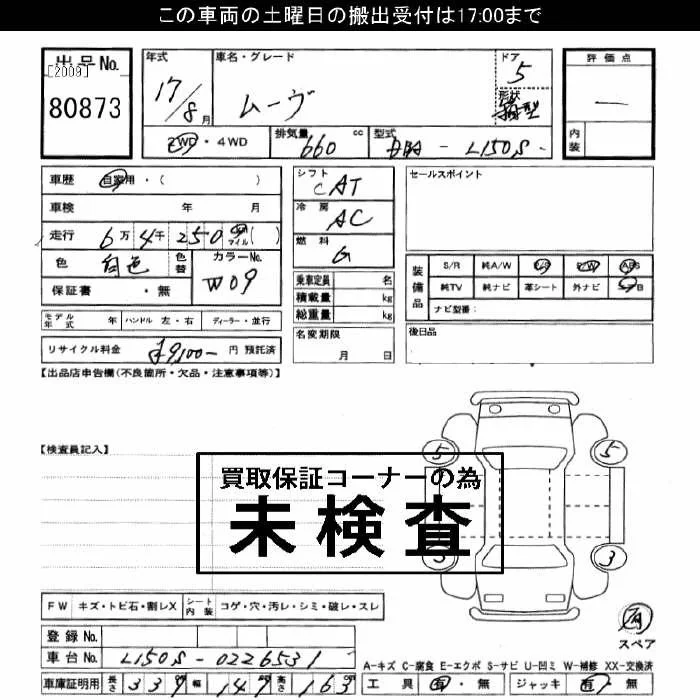 この車両の土曜日の搬出受付は17:00まで
出品No. [2009] 80873
年式 17/8月
車名・グレード ムーヴ
ドア 5 形状 箱型
評価点 一
内装
2WD・4WD 排気量 660 cc 型式 DBA - L150S -
車歴 自家用・( )
車検 年 月
走行 6万4千250 マイル( )
色 白色 色替 カラーNo. W09
保証書 ・無
シフト CAT
冷房 AC
燃料 G
乗車定員 名
積載量 kg
総重量 kg
セールスポイント
装備品 S/R 純A/W P/S P/W ABS
純TV 純ナビ 革シート 外ナビ
ナビ型番:
モデル年式 年 ハンドル 左・右 ディーラー・並行
名変期限 月 日
後日品
リサイクル料金 ¥9,100- 円 預託済
【出品店申告欄(不良箇所・欠品・注意事項等)】
【検査員記入】
買取保証コーナーの為
未検査
5 5
3 3
FW キズ・トビ石・割レX シート内装 コゲ・穴・汚レ・シミ・破レ・スレ
登録No.
車台No. L150S-0226531
有 スペア
A-キズ C-腐食 E-エクボ S-サビ U-凹ミ W-補修 XX-交換済
車庫証明用 長さ 339 幅 147 高さ 163
工具 有・無 ジャッキ 有・無